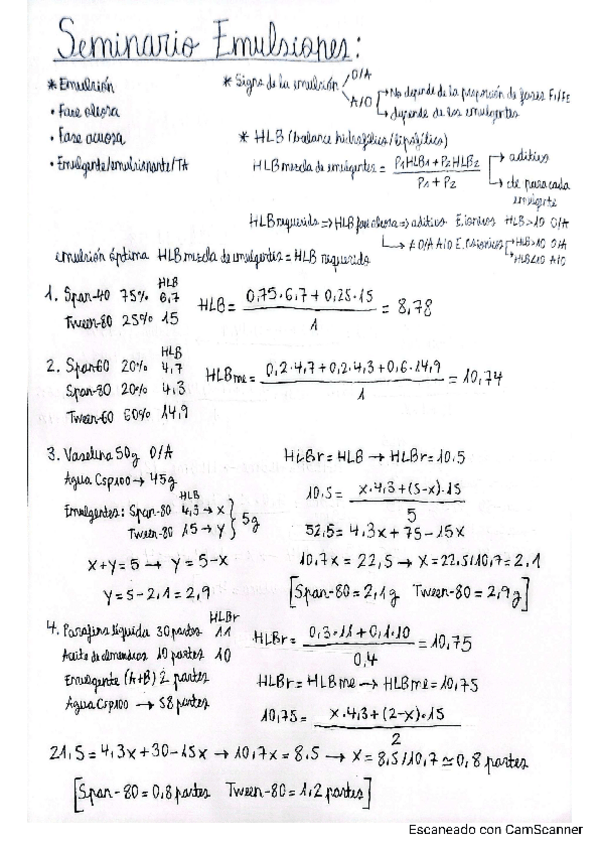 Seminario Emulsiones:
* Emulsión
• Fase oleosa
• Fase acuosa
• Emulgente/emulsionante/TA
* Signo de la emulsión
O/A
A/O
→ No depende de la proporción de fases FI/FE
→ depende de los emulgentes
* HLB (balance hidrofílico/lipofílico)
HLB mezcla de emulgentes = P1HLB1 + P2HLB2 / P1 + P2
→ aditivo
→ cte para cada emulgente
HLB requerido => HLB fase oleosa => aditivo E.iónicos HLB>10 O/A
↳ ≠ O/A A/O
HLB>10 O/A
HLB<10 A/O
emulsión óptima HLB mezcla de emulgentes = HLB requerido
HLB
1. Span-40 75% 6,7
Tween-80 25% 15
HLB = 0,75·6,7 + 0,25·15 / 1 = 8,78
HLB
2. Span60 20% 4,7
Span-80 20% 4,3
Tween-60 60% 14,9
HLBme = 0,2·4,7 + 0,2·4,3 + 0,6·14,9 / 1 = 10,74
3. Vaselina 50g O/A
Agua Csp100 → 45g
HLB
Emulgentes: Span-80 4,3 → x
Tween-80 15 → y } 5g
x+y=5 → y=5-x
y=5-2,1=2,9
HLBr = HLB → HLBr = 10.5
10.5 = x·4,3 + (5-x)·15 / 5
52,5 = 4,3x + 75 - 15x
10,7x = 22,5 → x = 22,5/10,7 = 2,1
[Span-80 = 2,1g Tween-80 = 2,9g]
HLBr
4. Parafina líquida 30 partes 11
Aceite de almendras 10 partes 10
Emulgente (A+B) 2 partes
Agua Csp100 → 58 partes
HLBr = 0,3·11 + 0,1·10 / 0,4 = 10,75
HLBr = HLBme → HLBme = 10,75
10,75 = x·4,3 + (2-x)·15 / 2
21,5 = 4,3x + 30 - 15x → 10,7x = 8.5 → x = 8,5/10,7 ≃ 0,8 partes
[Span-80 = 0,8 partes Tween-80 = 1,2 partes]
Escaneado con CamScanner